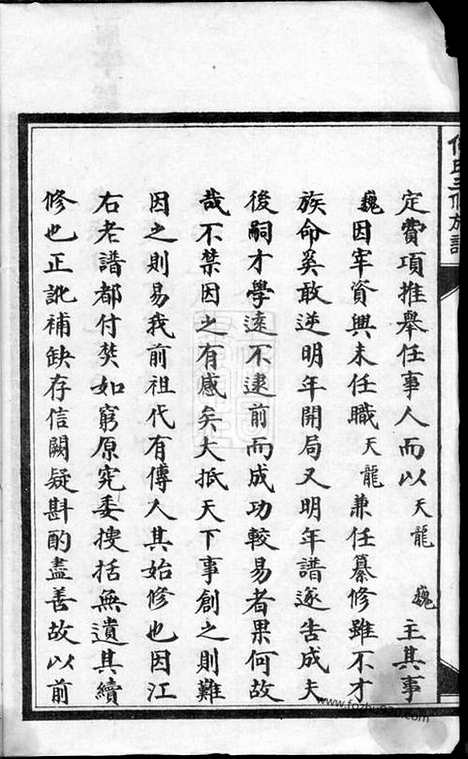 氏三修族譜
定費項推舉任事人而以天龍 巍主其事
巍因宰資興未任職天龍兼任纂修雖不才
族命奚敢逆明年開局又明年譜遂告成夫
後嗣才學遠不逮前而成功較易者果何故
哉不禁因之有感矣大抵天下事創之則難
因之則易我前祖代有傳人其始修也因江
右老譜都付焚如窮原究委搜括無遺其續
修也正訛補缺存信闕疑斟酌盡善故以前